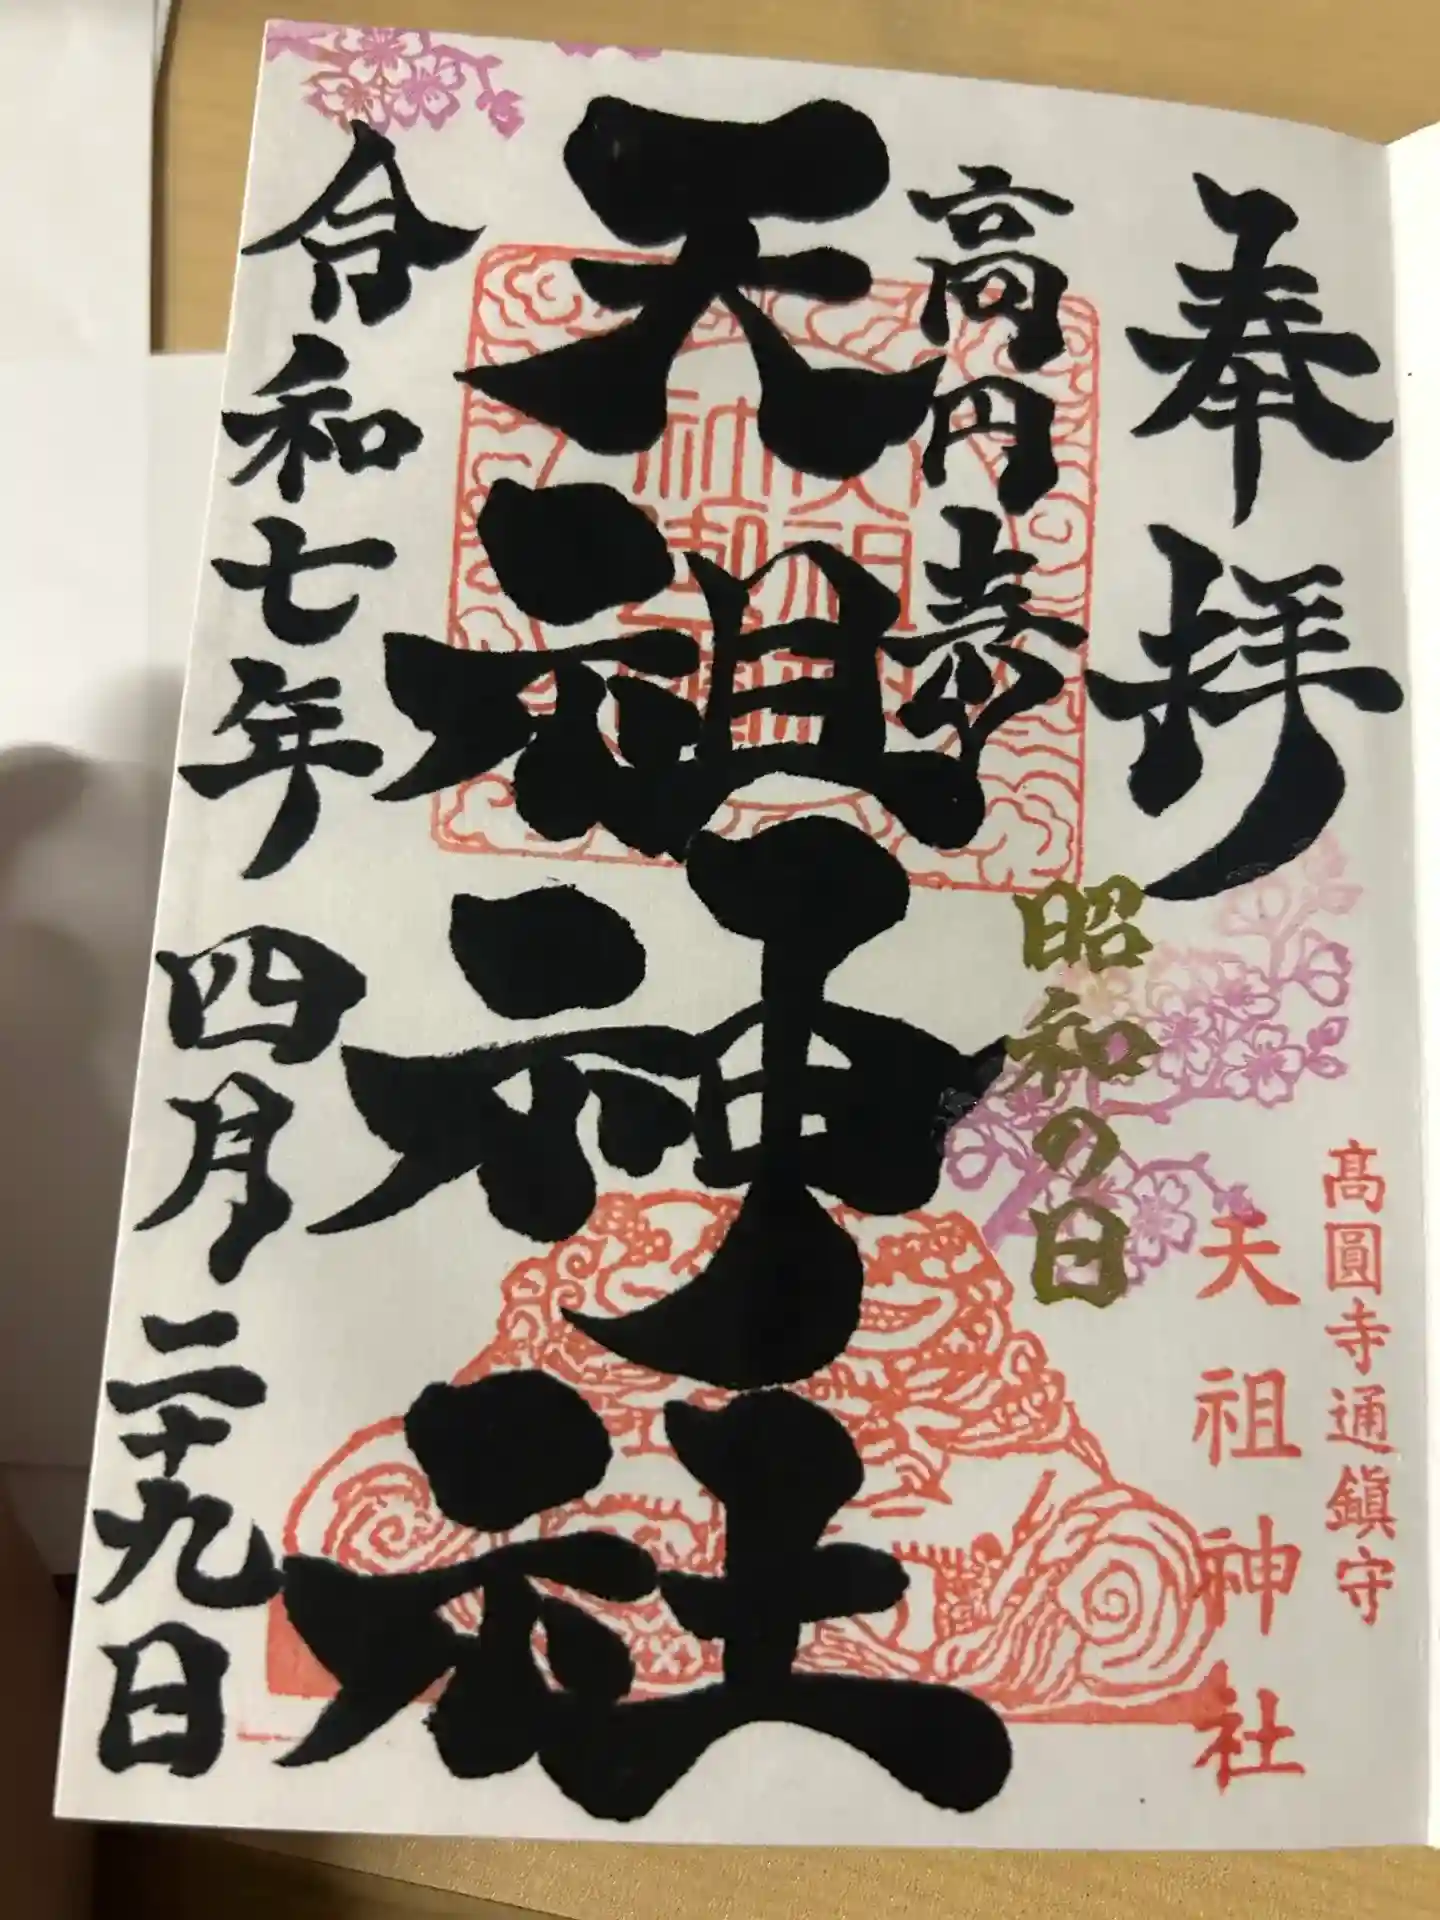 奉拝
高円寺
天祖神社
昭和の日
高圓寺通鎮守
天祖神社
令和七年四月二十九日